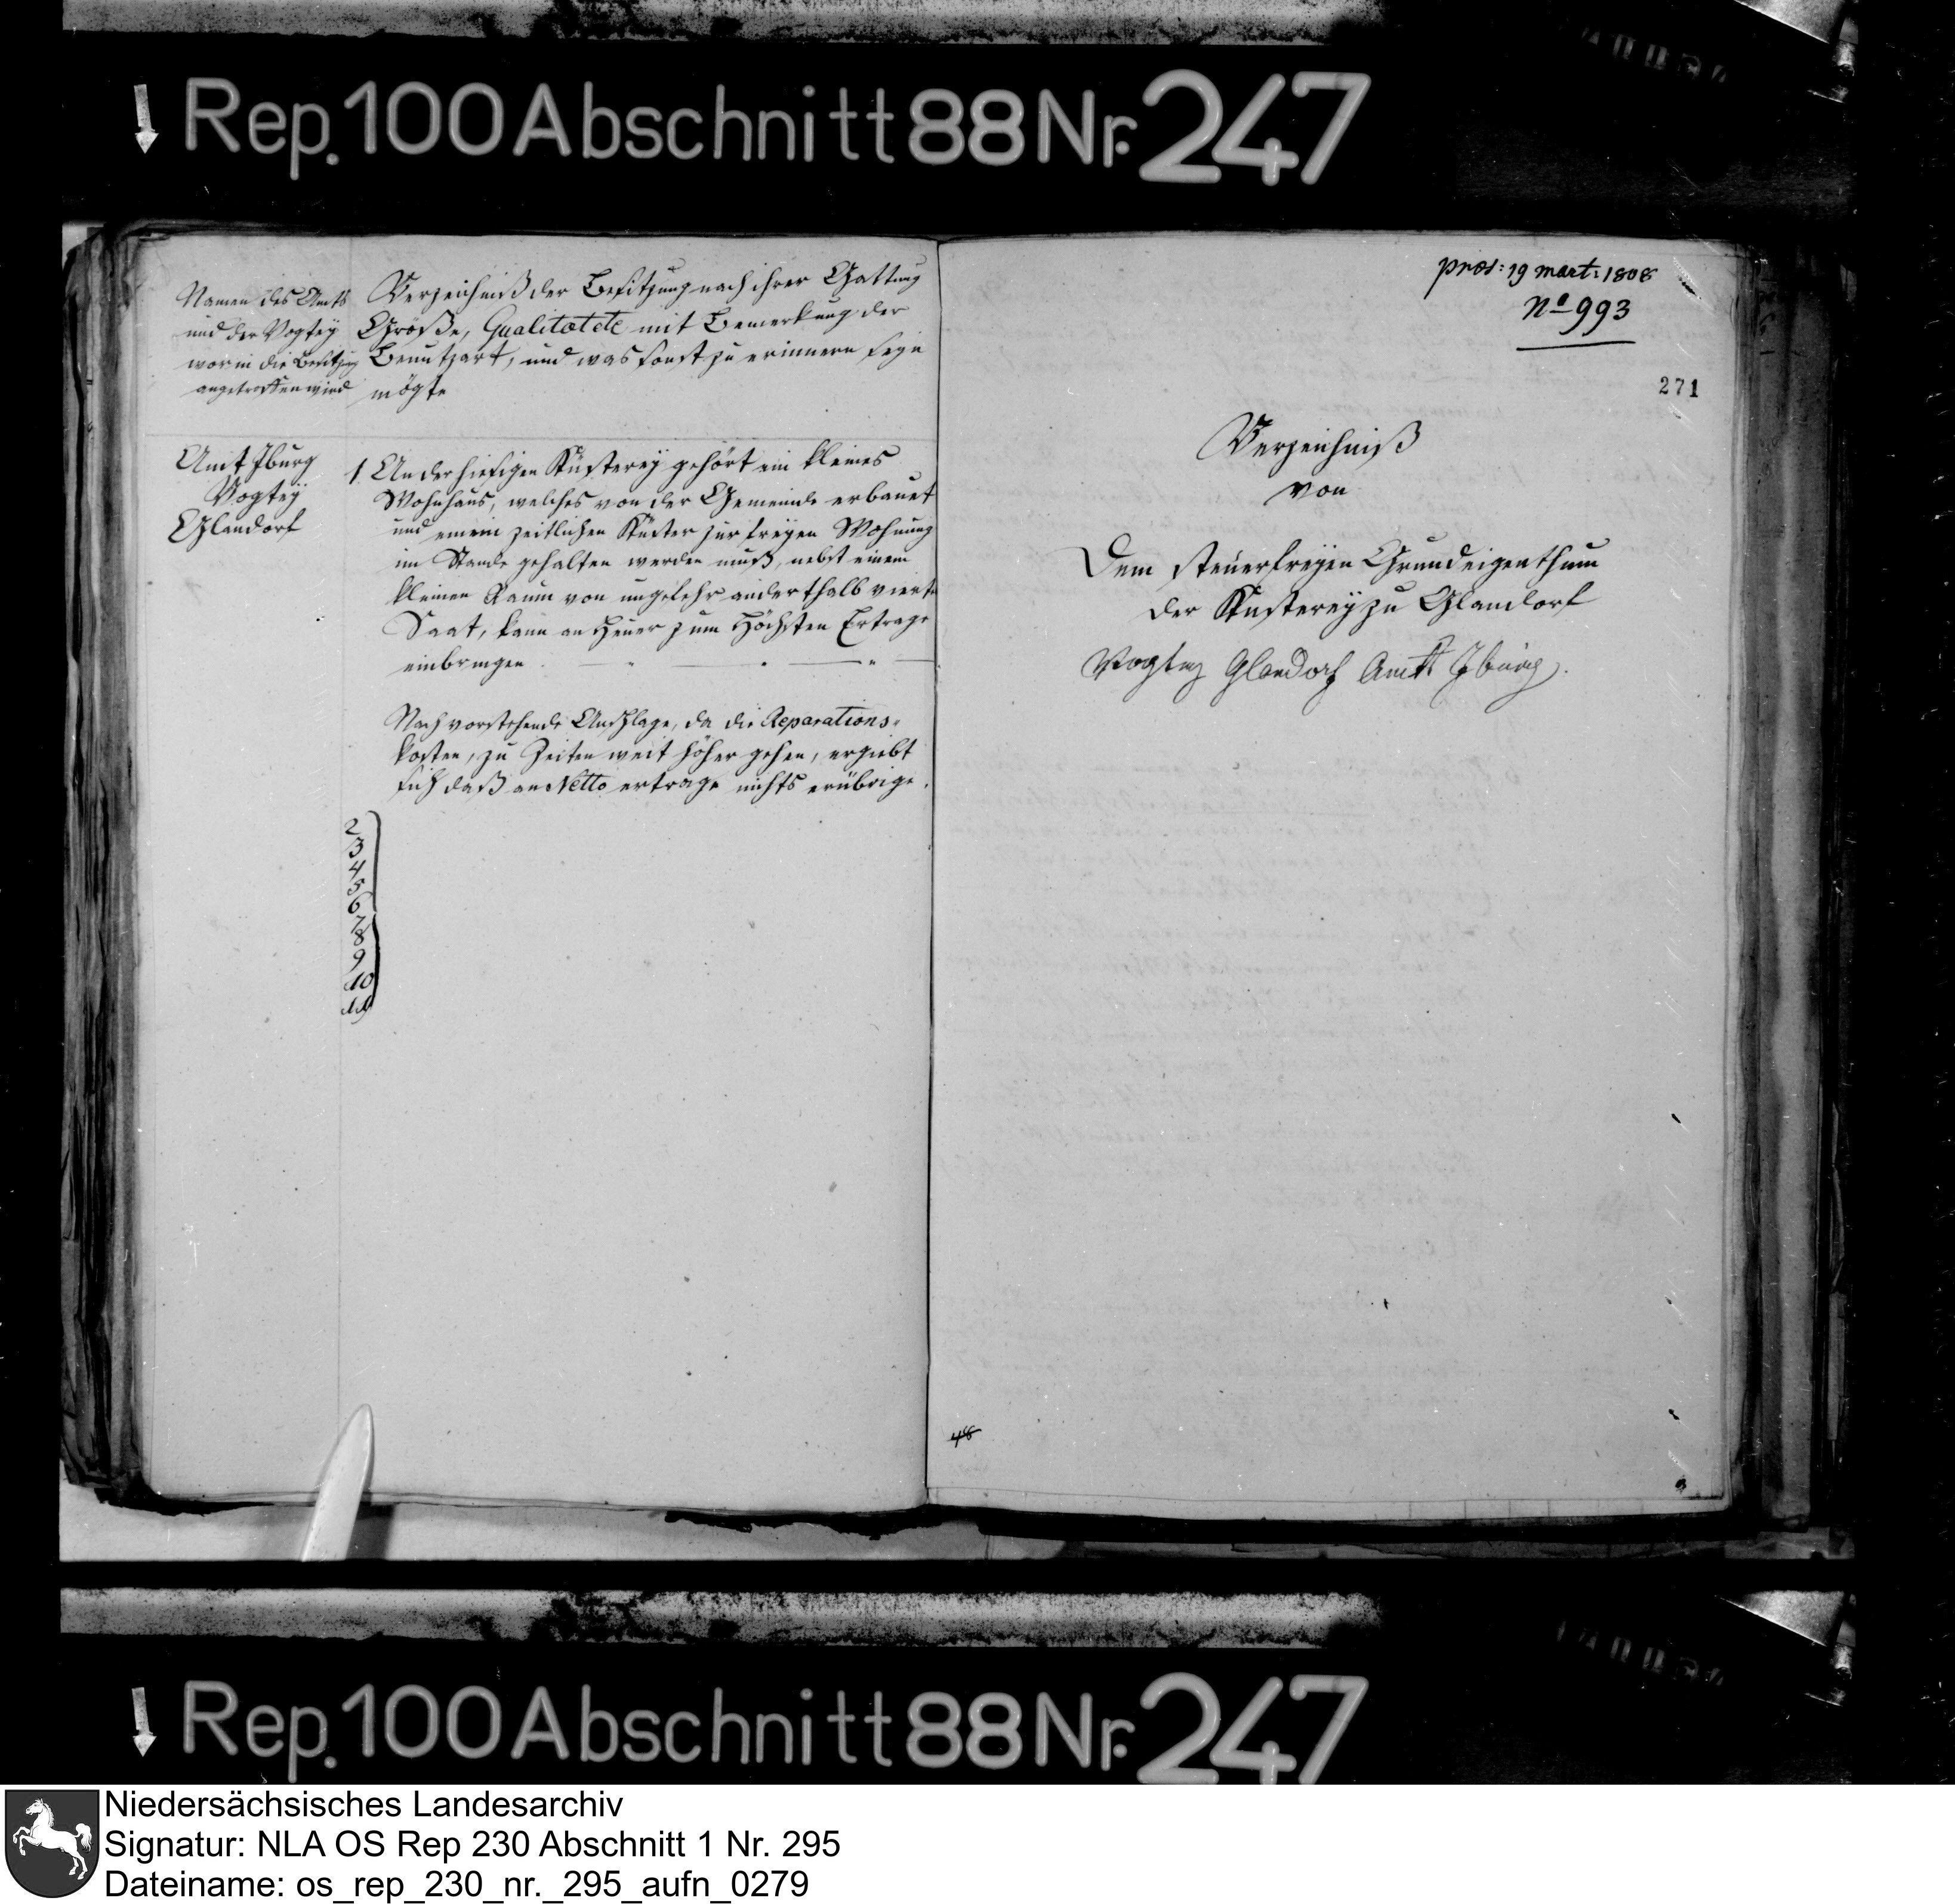 Rep. 100 Abschnitt 88 Nr. 247
Namen des Amts
und der Vogtey
worin die Besitzung
angetroffen wird
Verzeichniß der Besitzung nach ihrer Gattung
Größe, Qualitæt etc mit Bemerkung der
Benutzart, und was sonst zu erinnern seyn
mögte
Amt Iburg
Vogtey
Glandorf
1. An der hiesigen Küsterey gehört ein kleines
Wohnhaus, welches von der Gemeinde erbauet
und einem zeitlichen Küster zur freyen Wohnung
im Stande gehalten werden muß, nebst einem
kleinen Raum von ungefehr anderthalb viertel
Saat, kann an Heuer zum Höchsten Ertrage
einbringen
Nach vorstehende Anschlage, da die Reparations-
kosten, zu Zeiten weit höher gehen, ergiebt
sich daß an Netto ertrage nichts erübrige.
2
3
4
5
6
7
8
9
10
11
præs: 19 mart: 1808
No 993
271
Verzeichniß
von
Dem steuerfreyen Grundeigenthum
der Küsterey zu Glandorf
Vogtey Glandorf Amts Iburg.
48
Rep. 100 Abschnitt 88 Nr. 247
Niedersächsisches Landesarchiv
Signatur: NLA OS Rep 230 Abschnitt 1 Nr. 295
Dateiname: os_rep_230_nr._295_aufn_0279